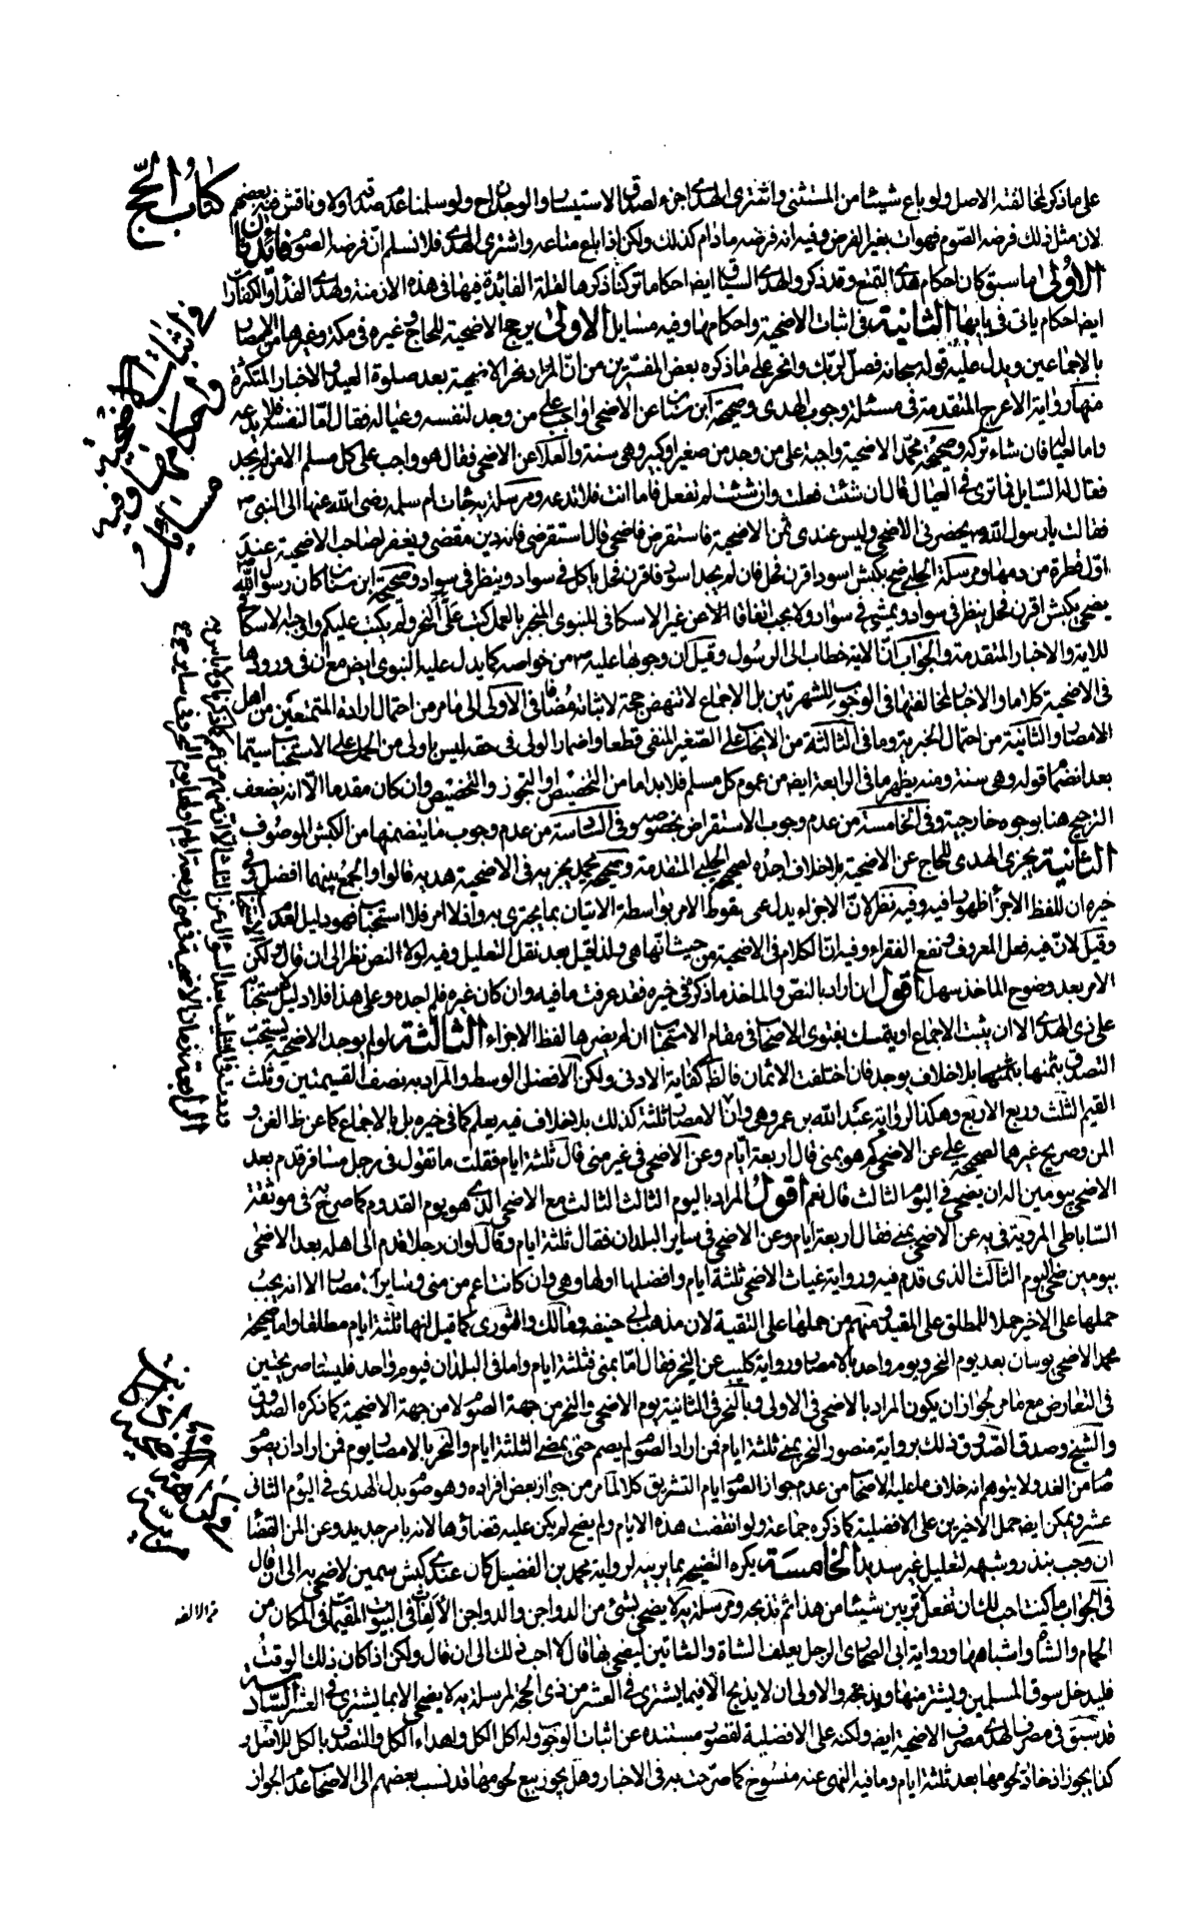 كتاب الحج
على ما ذكر لمخالفته الاصل ولو باع شيئا من المستثنى واشترى الهدى اجزء لصدق الاستيسار والوجدان ولو سلمنا عدم صدقهما
لان مثل ذلك فرضه الصوم فهو ات بغير الفرض وفيه انه فرضه ما دام كذلك ولكن اذا باع متاعه واشترى الهدى فلا نسلم ان فرضه الصوم فائدتان
الاولى ما سبق كان احكام هدى التمتع وقد ذكر والهدى السياق ايضا احكاما تركنا ذكرها لقلة الفائدة فيها فى هذه الازمنة ولهدى الفداء والكفارات
ايضا احكام ياتى فى بابها الثانية فى اثبات الاضحية واحكامها وفيه مسايل الاولى يرجح الاضحية للحاج وغيره فى مكة وغيرها من الامصار
بالاجماعين ويدل عليه قوله سبحانه فصل لربك وانحر على ما ذكره بعض المفسرين من ان المراد نحر الاضحية بعد صلوة العيد والاخبار المتكثرة
منها رواية الاعرج المتقدمة فى مسئلة وجوب الهدى وصحيحة ابن سنان عن الاضحى اواجب على من وجد لنفسه وعياله فقال اما لنفسه فلا يدعه
واما لعياله فان شاء تركه وصحيحة محمد الاضحية واجبة على من وجد من صغير او كبير وهى سنة والعلا عن الاضحى فقال هو واجب على كل مسلم الا من لم يجد
فقال له السايل فما ترى فى العيال قال ان شئت فعلت وان شئت لم تفعل فاما انت فلا تدعه ومرسلة يه جائت ام سلمه رضى الله عنها الى النبى ص
فقالت يا رسول الله ص يحضر فى الاضحى وليس عندى ثمن الاضحية فاستقرض فاضحى قال استقرضى فانه دين مقضى ويغفر لصاحب الاضحية عند
اول قطرة من دمها ومرسلة الحلبى ضح بكبش اسود اقرن فحل فان لم يجد اسود فاقرن فحل ياكل فى سواد وينظر فى سواد وصحيحة ابن سنان كان رسول الله
يضحى بكبش اقرن فحل ينظر فى سواد ويمشى فى سواد ولا يجب اتفاقا الا عن غير الاسكافى للنبوى المنجبر بالعمل كتب على النحر ولم يكتب عليكم واوجبه الاسكافى
للاية والاخبار المتقدمة والجواب ان الاية خطاب الى الرسول وقيل ان وجوبها عليه ص من خواصه كما يدل عليه النبوى ايض مع ان فى ورودها
فى الاضحية كلاما والاخبار لمخالفتها فى الوجوب للشهرتين بل الاجماع لا تنهض حجة لاثباته مضافا فى الاولى الى ما مر من احتمال ارادة المتمتعين من اهل
الامصار والثانية من احتمال الخبرية وما فى الثالثة من الايجاب على الصغير المنفى قطعا واضمار الولى فى حقه ليس باولى من الحمل على الاستحباب سيما
بعد انضمام قوله وهى سنة ومنه يظهر ما فى الرابعة ايض من عموم كل مسلم فلا بد اما من التخصيص او التجوز والتخصيص وان كان مقدما الا انه يضعف
الترجيح هنا بوجوه خارجية وفى الخامسة من عدم وجوب الاستقراض بخصوصه وفى السادسة من عدم وجوب ما يتضمنها من الكبش الموصوف
الثانية يجزى الهدى للحاج عن الاضحية بلا خلاف اجده لصحيح الحلبى المتقدمة وصحيح محمد يجزيه فى الاضحية هديه قالوا والجمع بينهما افضل
خيره ان للفظ الاجزاء ظهورا فيه وفيه نظر لان الاجزاء يدل على سقوط الامر بواسطة الاتيان بما يجتزى به واذ لا امر فلا استحباب فهو دليل العدم
وقيل لان فيه فعل المعروف ونفع الفقراء وفيه ان الكلام فى الاضحية من حيث انها هى ولذا قيل بعد نقل التعليل وفيه لولا النص نظر الى ان قال ولكن
الامر بعد وضوح الماخذ سهل اقول ان اراد بالنص والماخذ ما ذكر فى خيره فقد عرفت ما فيه وان كان غيره فلم اجده وعلى هذا فلا دليل لاستحبابه
على ذى الهدى الا ان يثبت الاجماع او يتمسك بفتوى الاصحاب فى مقام الاستحباب ان لم يضرها لفظ الاجزاء الثالثة لو لم يوجد الاضحية يستحب
التصدق بثمنها بلا خلاف يوجد فان اختلفت الاثمان فالظ كفاية الادنى ولكن الافضل الوسط والمراد به نصف القسيمتين وثلث
القيم الثلث وربع الاربع وهكذا لرواية عبد الله بن عمر وهى وان
الاضحى بيومين اله ان يضحى فى اليوم الثالث قال نعم اقول المراد باليوم الثالث الثالث مع الاضحى الذى هو يوم القدوم كما صرح به فى موثقة
الساباطى المروية فى يه عن الاضحى بمنى فقال اربعة ايام وعن الاضحى فى ساير البلدان فقال ثلثة ايام وقال لو ان رجلا قدم الى اهله بعد الاضحى
بيومين ضحى اليوم الثالث الذى قدم فيه ورواية غياث الاضحى ثلثة ايام وافضلها اولها وهى وان كانت اعم من منى وساير الامصار الا انه يجب
حملها على الاخير حملا للمطلق على المقيد ومنهم من حملها على التقية لان مذهب ابى حنيفه ومالك والثورى كما قيل انها ثلثة ايام مطلقا واما صحيحة
محمد الاضحى يومان بعد يوم النحر ويوم واحد بالامصار ورواية كليب عن النحر فقال اما بمنى فثلثة ايام واما فى البلدان فيوم واحد فليستا صريحتين
فى التعارض مع ما مر لجواز ان يكون المراد بالاضحى فى الاولى وبالنحر فى الثانية يوم الاضحى والنحر من جهة الصوم لا من جهة الاضحية كما ذكره الصدوق
والشيخ وصدق الصدوق ذلك برواية منصور النحر بمنى ثلثة ايام فمن اراد الصوم لم يصم حتى يمضى الثلثة ايام والنحر بالامصار يوم فمن اراد ان يصوم
صام من الغد ولا يتوهم انه خلاف ما عليه الاصحاب من عدم جواز الصوم ايام التشريق كلا لما مر من جواز بعض افراده وهو صوم بدل الهدى فى اليوم الثالث
عشر ويمكن ايضا حمل الاخيرين على الافضلية كما ذكره جماعة ولو انقضت هذه الايام ولم يضح لم يكن عليه قضاؤها لانه بامر جديد وعن المن القضاء
ان وجب بنذر وشبهه لتعليل غير سديد الخامسة يكره التضحية بما يربيه لرواية محمد بن الفضيل كان عندى كبش سمين لاضحى به الى ان قال
فى الجواب ما كنت احب لك ان تفعل لا تربين شيئا من هذا ثم تذبحه ومرسلة يه لا يضحى بشئ من الدواجن والدواجن الالفات فى البيوت المقيمة فى المكان من
الحمام والشاة واشباهها ورواية ابى الصحارى الرجل يعلف الشاة والشاتين ليضحى بها قال لا احب ذلك الى ان قال ولكن اذا كان ذلك الوقت
فليدخل سوق المسلمين ويشتر منها ويذبحه والاولى ان لا يذبح الا فيما يشترى فى العشر من ذى الحجة لمرسلة يه لا يضحى الا بما يشترى فى العشر السادسة
قد سبق فى مصرف الهدى مصرف الاضحية ايضا ولكنه على الافضلية لقصور مستنده عن اثبات الوجوب وله اكل الكل واهداء الكل والتصدق بالكل للاصل و
كذا يجوز ادخار لحومها بعد ثلثة ايام وما فيه النهى عنه منسوخ كما صرحت به فى الاخبار وهل يجوز بيع لحومها قد نسب بعضهم الى الاصحاب عدم الجواز
فى اثبات الاضحية
واحكامها وفيه
مسايل